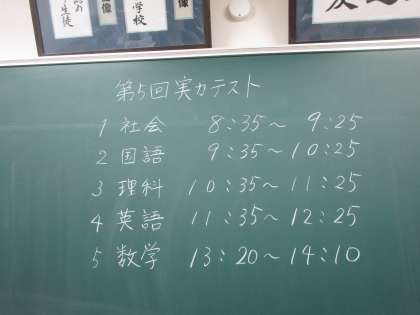 像
生徒
学校
像
第5回実力テスト
1 社会 8:35〜 9:25
2 国語 9:35〜10:25
3 理科 10:35〜11:25
4 英語 11:35〜12:25
5 数学 13:20〜14:10